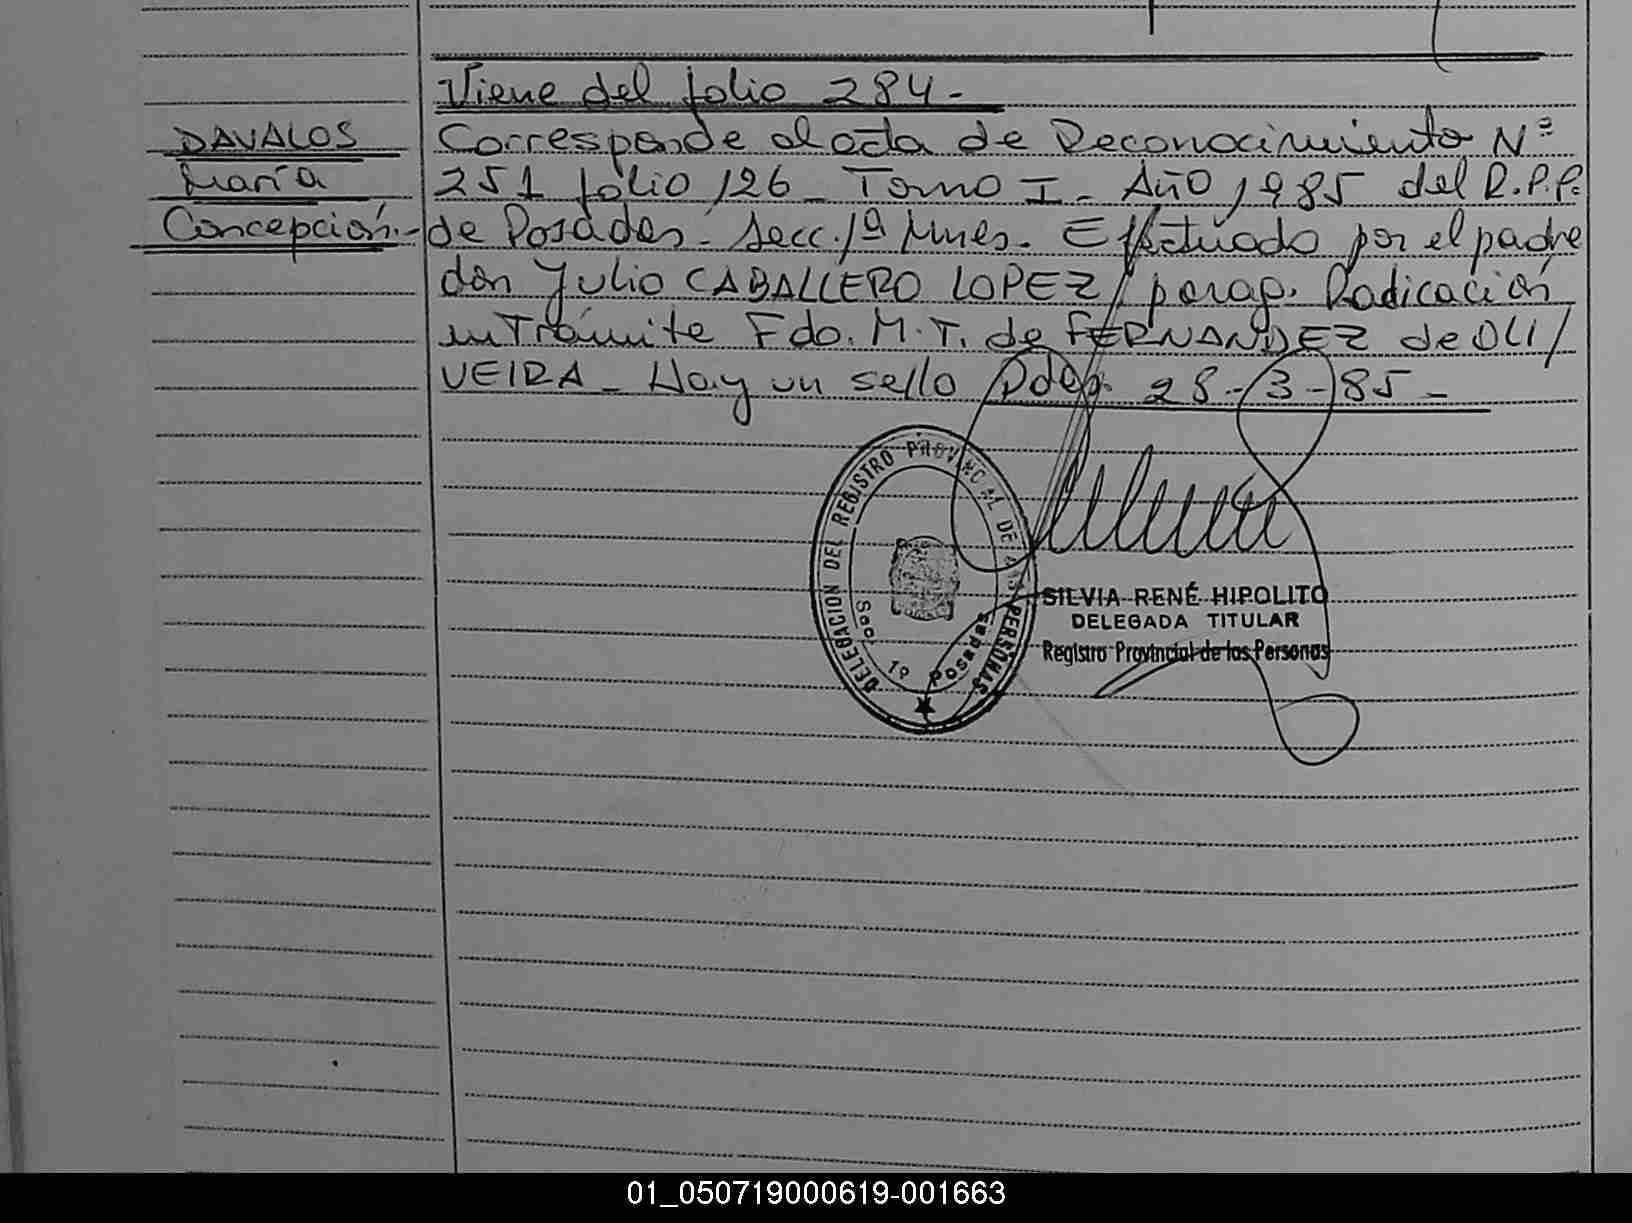 Viene del folio 284-
DAVALOS
María
Concepción.-
Corresponde al acta de Reconocimiento Nº
251 folio 126 - Tomo I - Año 1985 del R.P.P.
de Posadas - Secc. 1ª Mnes. Efectuado por el padre
don Julio CABALLERO LOPEZ/ parag. Radicación
en Trámite Fdo. M.T. de FERNANDEZ de OLI/
VEIRA - Hay un sello Pdas. 28-3-85-
DELEGACION DEL REGISTRO PROVINCIAL DE LAS PERSONAS
Sec. 1º Posadas
SILVIA RENÉ HIPOLITO
DELEGADA TITULAR
Registro Provincial de las Personas
01_050719000619-001663